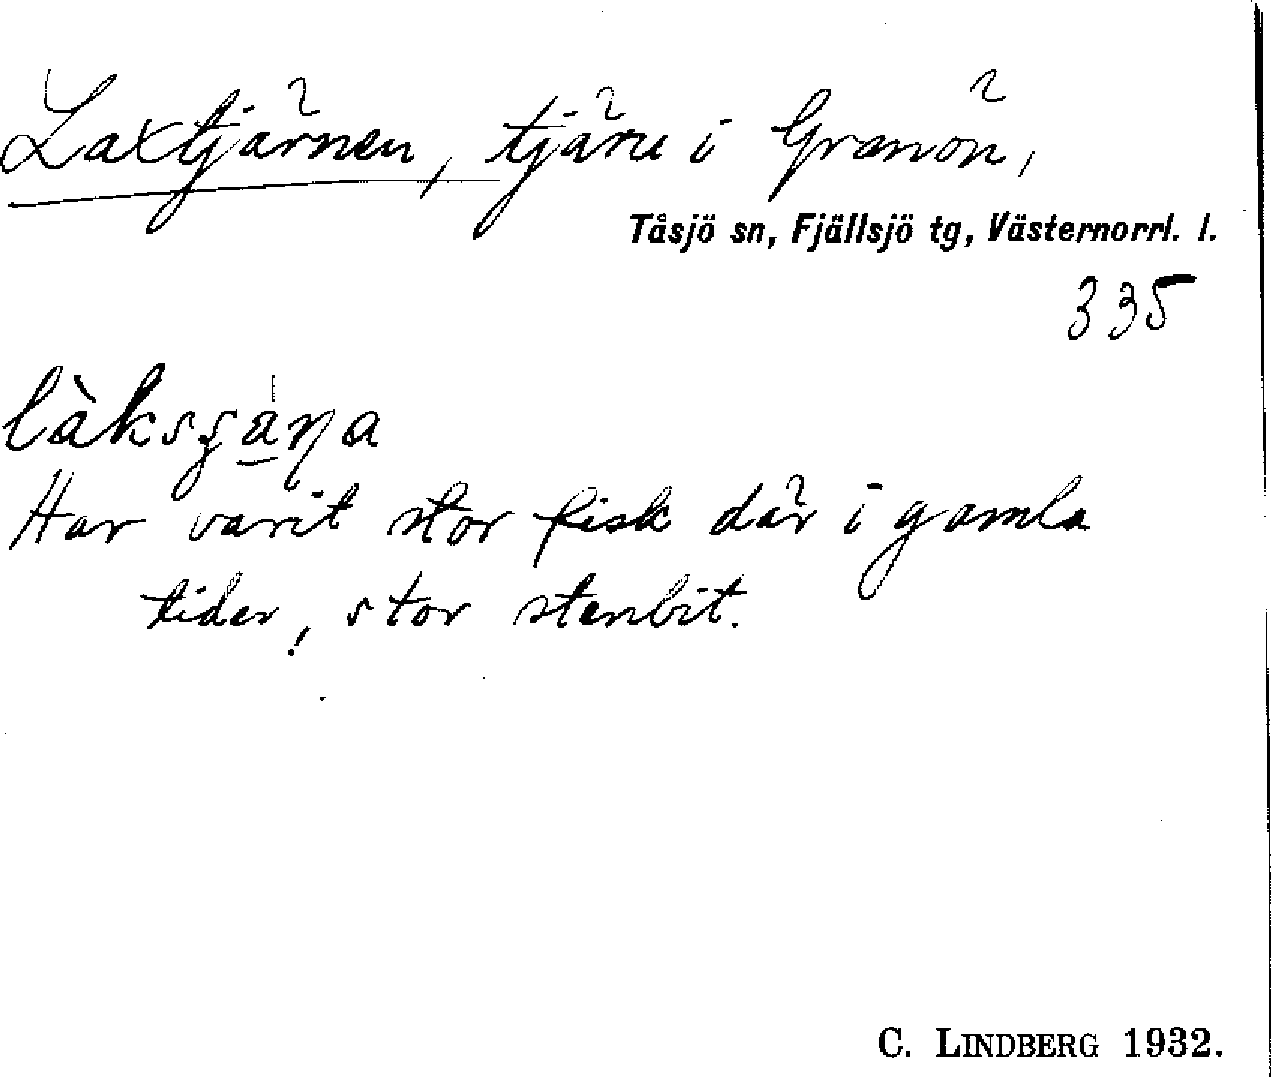 Laxtjärnen, tjärn i Granön,
Tåsjö sn, Fjällsjö tg, Västernorrl. l.
335
Har varit stor fisk där i gamla
tider, stor stenbit.
C. LINDBERG 1932.